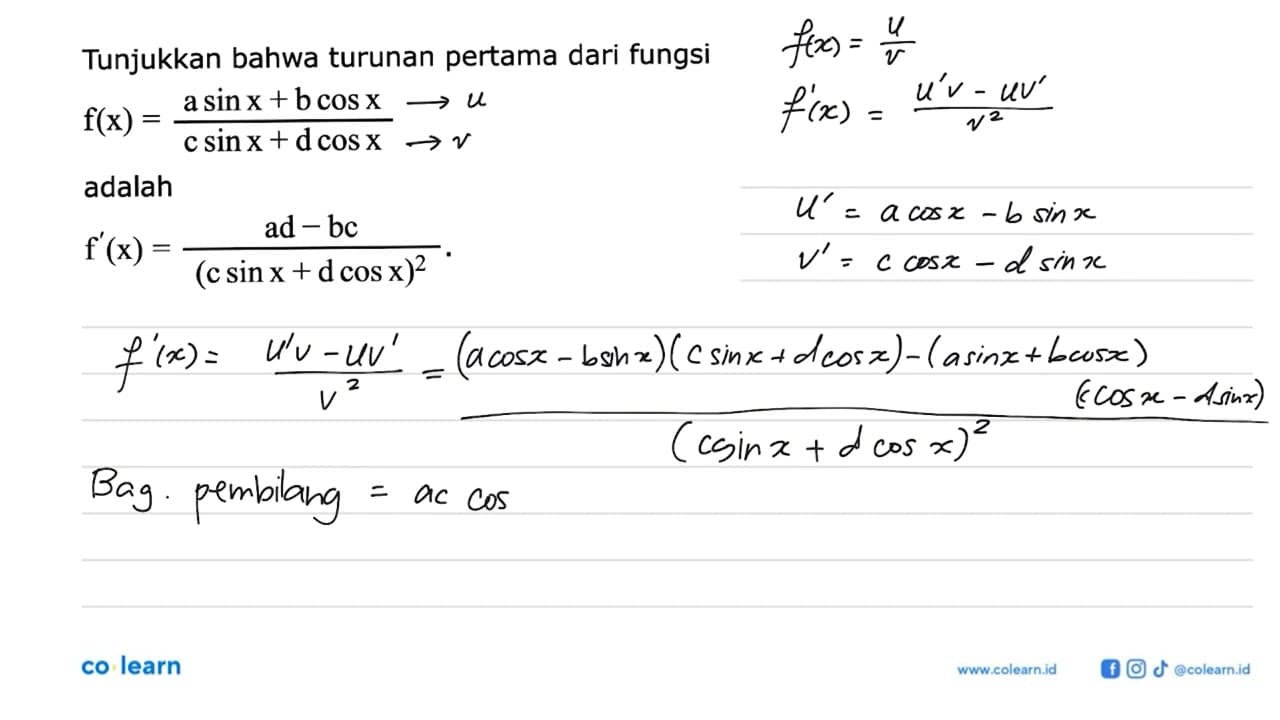 Tunjukkan bahwa turunan pertama dari fungsi
f(x) = (a sin x + b cos x)/(c sin x + d cos x) → u → v
adalah
f'(x) = (ad − bc)/(c sin x + d cos x)² .
f(x) = u/v
f'(x) = (u'v - uv')/v²
u' = a cos x - b sin x
v' = c cos x - d sin x
f'(x) = (u'v - uv')/v² = (a cos x - b sin x)(c sin x + d cos x) - (a sin x + b cos x)
(c cos x - d sin x)
(c sin x + d cos x)²
Bag. pembilang = ac cos
co learn
www.colearn.id @colearn.id